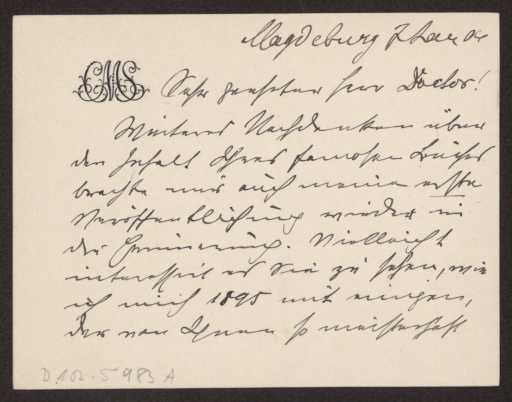 Magdeburg 7
CMS
Sehr geehrter Herr Doctor!
Weiteres Nachdenken über
den Inhalt Ihres famosen Buches
brachte mir auch meine erste
Veröffentlichung wieder in
die Erinnerung. Vielleicht
interessirt es Sie zu sehen, wie
ich mich 1895 mit einigen,
der von Ihnen so meisterhaft
D.102.5983 A